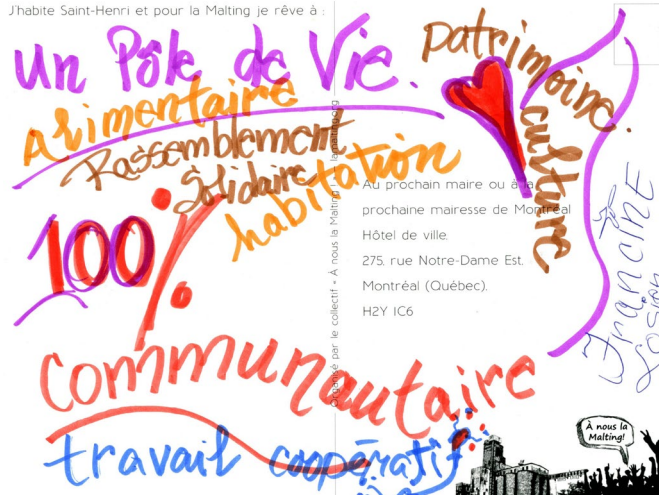 J'habite Saint-Henri et pour la Malting je rêve à :
un Pôle de Vie.
Alimentaire
Rassemblement
Solidaire
habitation
100%
Communautaire
travail coopératif
patrimoine.
culture
Organisé par le collectif • À nous la Malting !
Au prochain maire ou à la
prochaine mairesse de Montréal
Hôtel de ville,
275, rue Notre-Dame Est,
Montréal (Québec),
H2Y 1C6
Francine
À nous la
Malting!